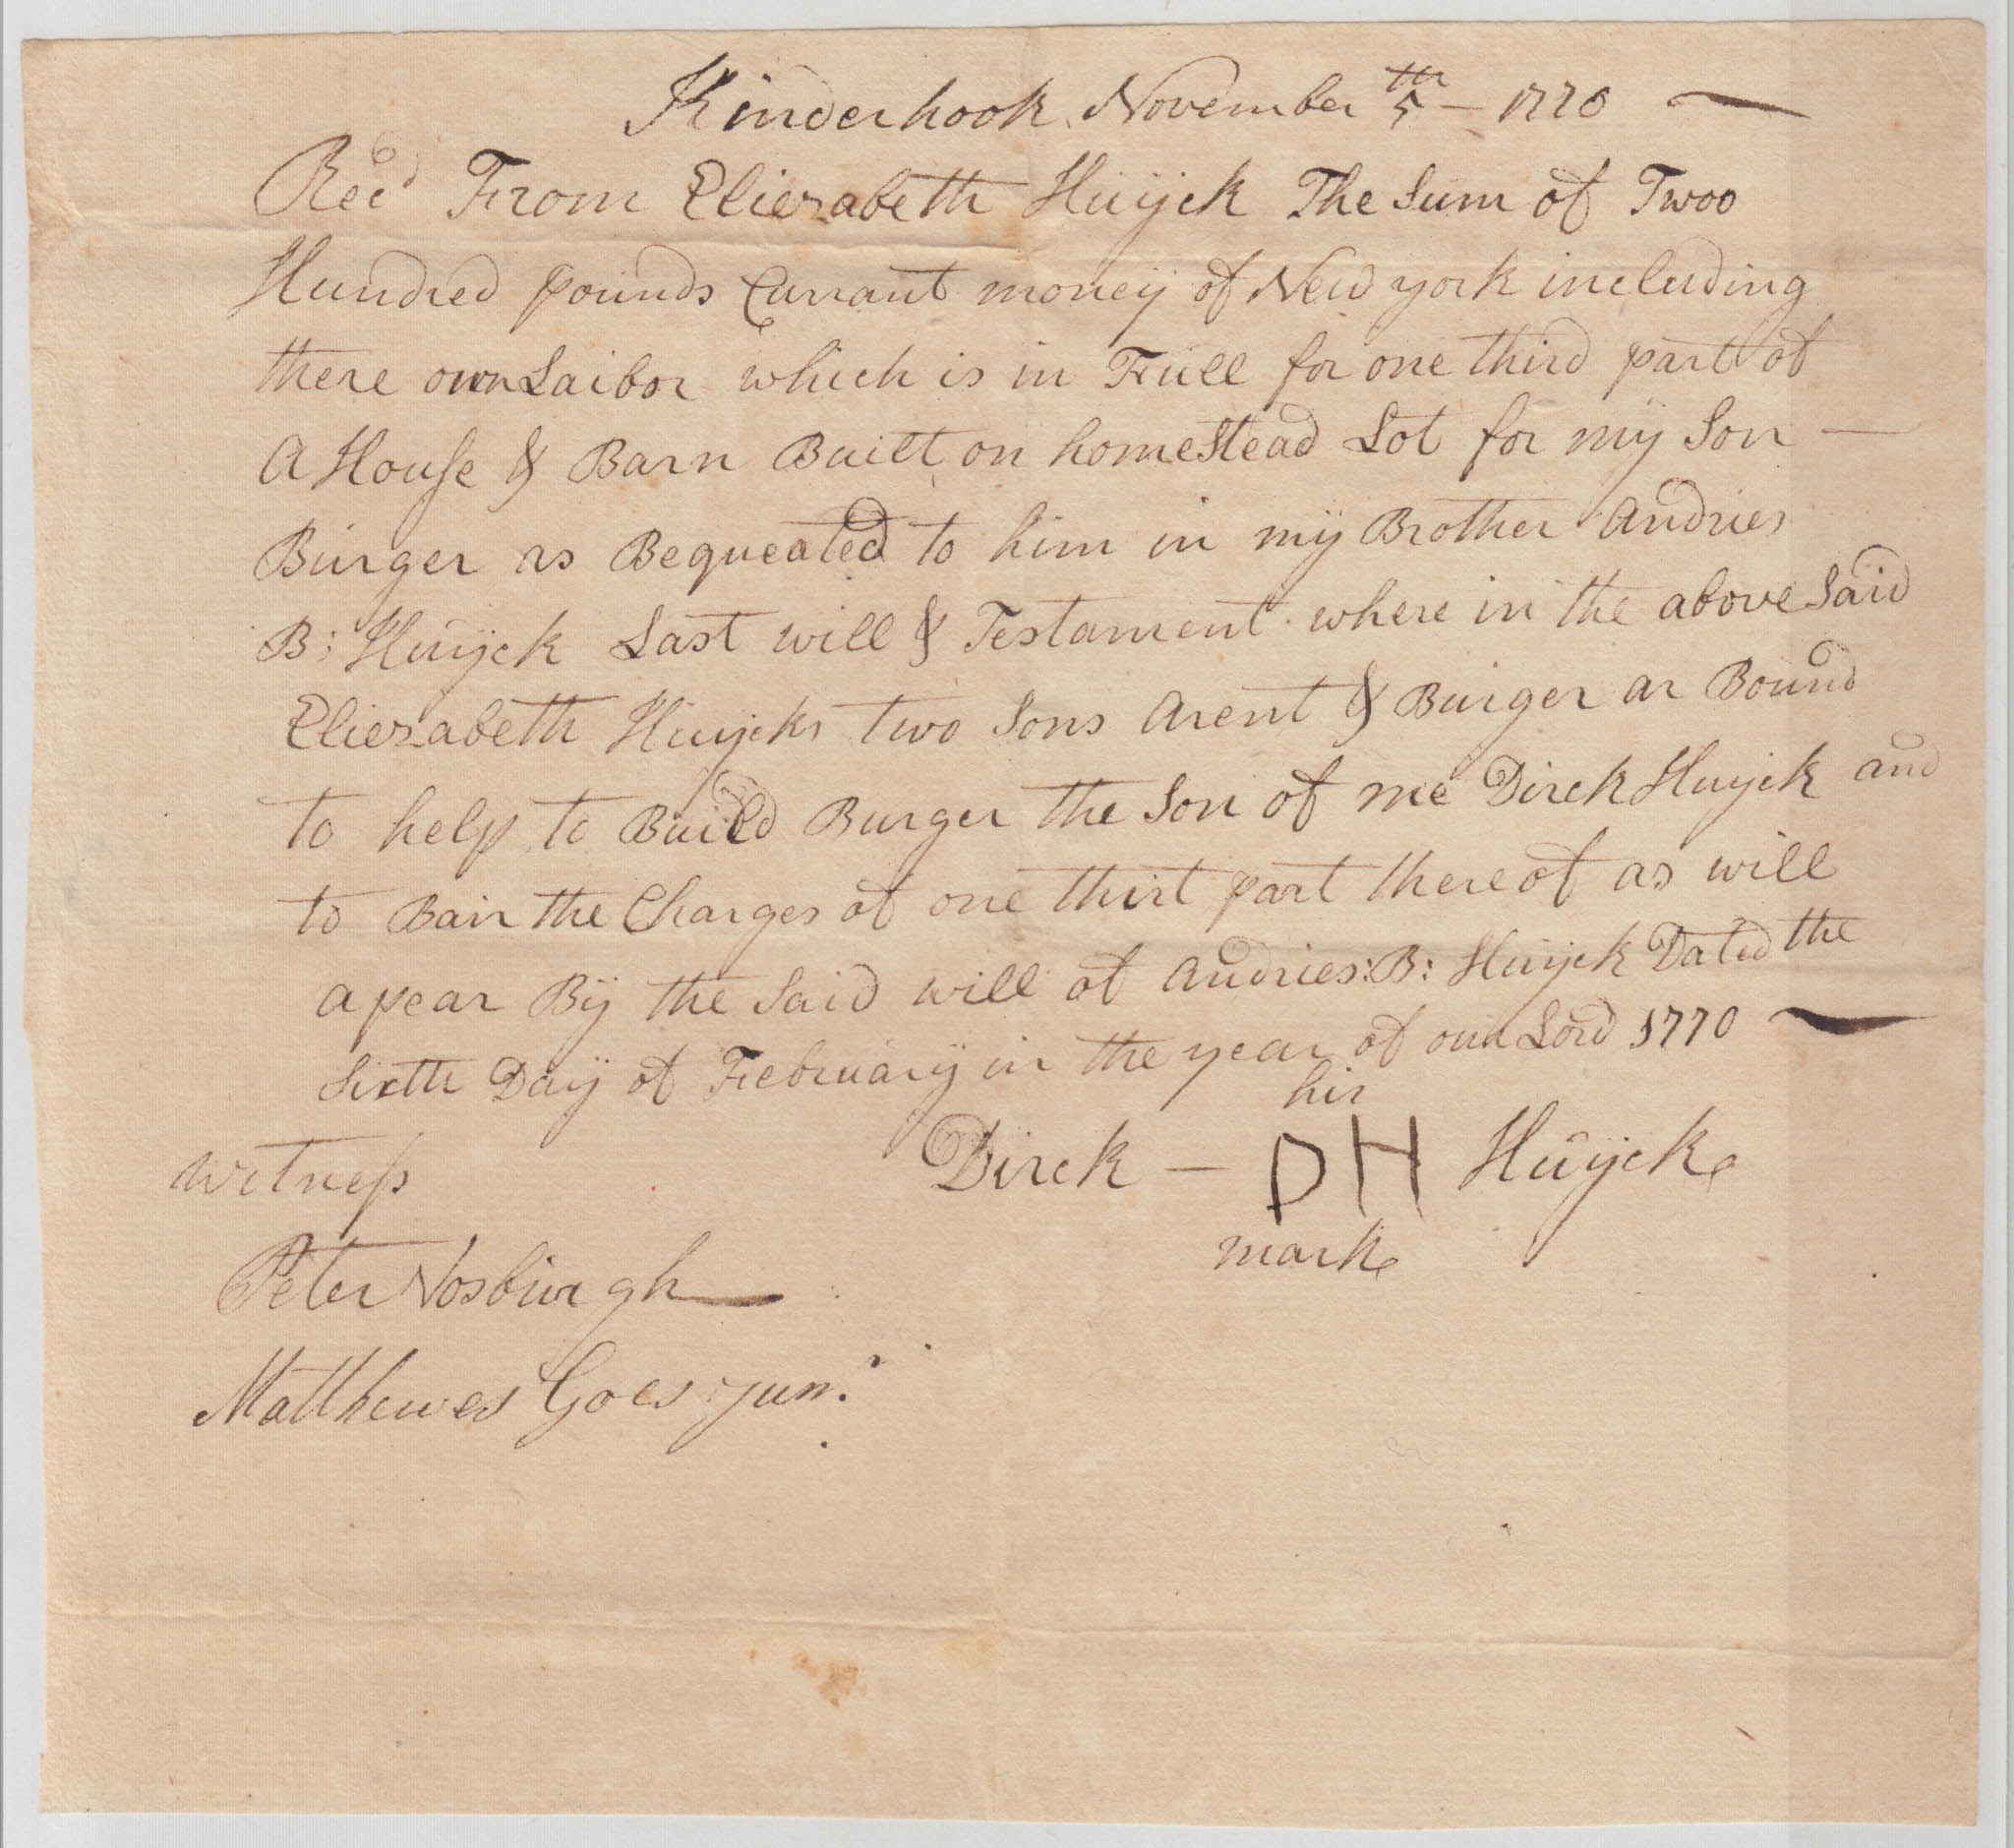 Kinderhook November 5th – 1770 —
Recd From Eliezabeth Huÿck The Sum of Twoo
Hundred pounds Currant moneÿ of New york including
there own Laibor which is in Full for one third part of
A House & Barn Built on homeStead Lot for mÿ Son —
Burger as Bequeated to him in mÿ Brother Andries
B: Huÿck Last will & Testament where in the above Said
Eliezabeth Huycks two Sons Arent & Burger ar Bound
to help to Build Burger the Son of me Dirck Huyck and
to Bair the Charges of one thirt part thereof as will
apear Bÿ the Said will of Andries: B: Huÿck Dated the
Sixth Daÿ of Februarÿ in the year of our Lord 1770 —
his
Witness Dirck – DH Huÿck
mark
Peter Vosburgh
Matthewes Goes junr